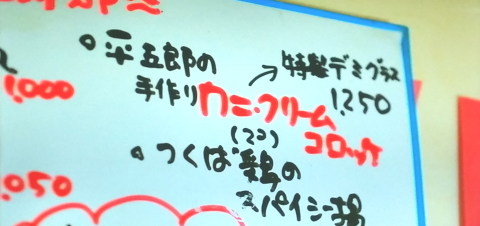 平五郎の
手作りカニ・クリーム
(2コ)コロッケ
特製デミグラス
1,250
1,000
つくば鶏の
スパイシー揚
,050